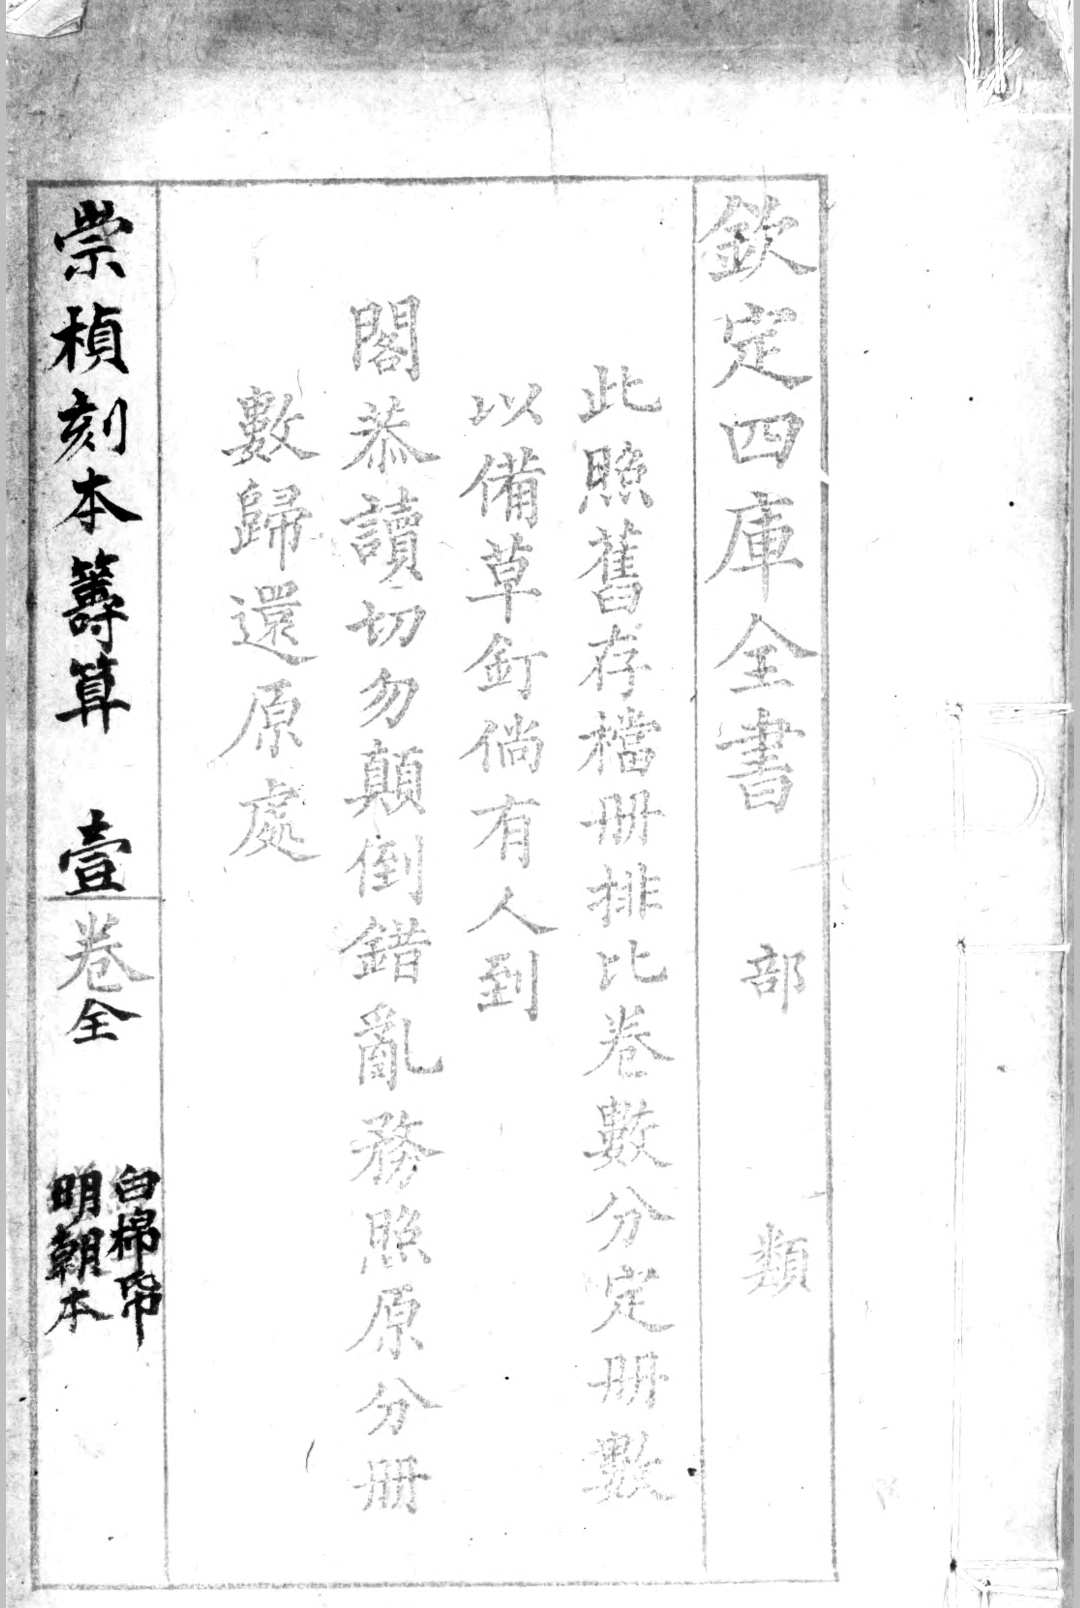 欽定四庫全書 部 類
此照舊存檔册排比卷數分定册數
以備草釘倘有人到
閣恭讀切勿顛倒錯亂務照原分册
數歸還原處
崇楨刻本籌算 壹卷全
白棉帋
明朝本